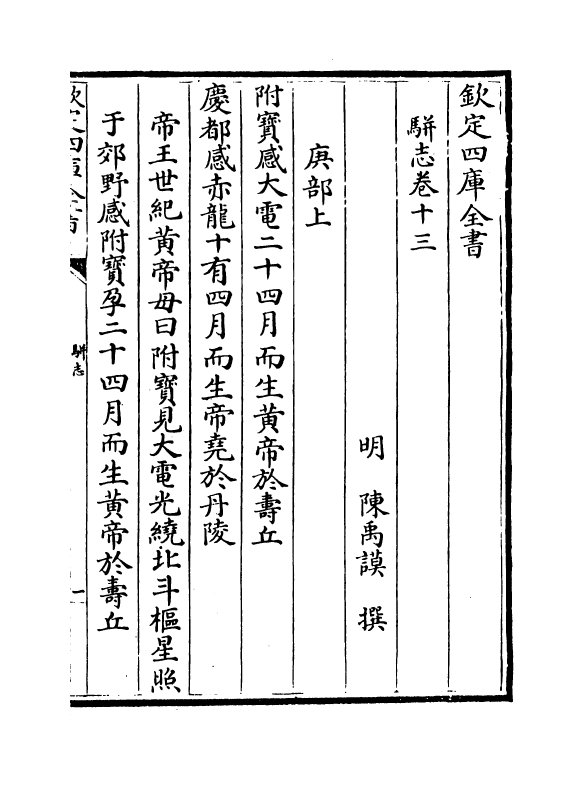 欽定四庫全書
駢志卷十三
明 陳禹謨 撰
庚部上
附寶感大電二十四月而生黃帝於壽丘
慶都感赤龍十有四月而生帝堯於丹陵
帝王世紀黃帝母曰附寶見大電光繞北斗樞星照
于郊野感附寶孕二十四月而生黃帝於壽丘
欽定四庫全書
駢志
一